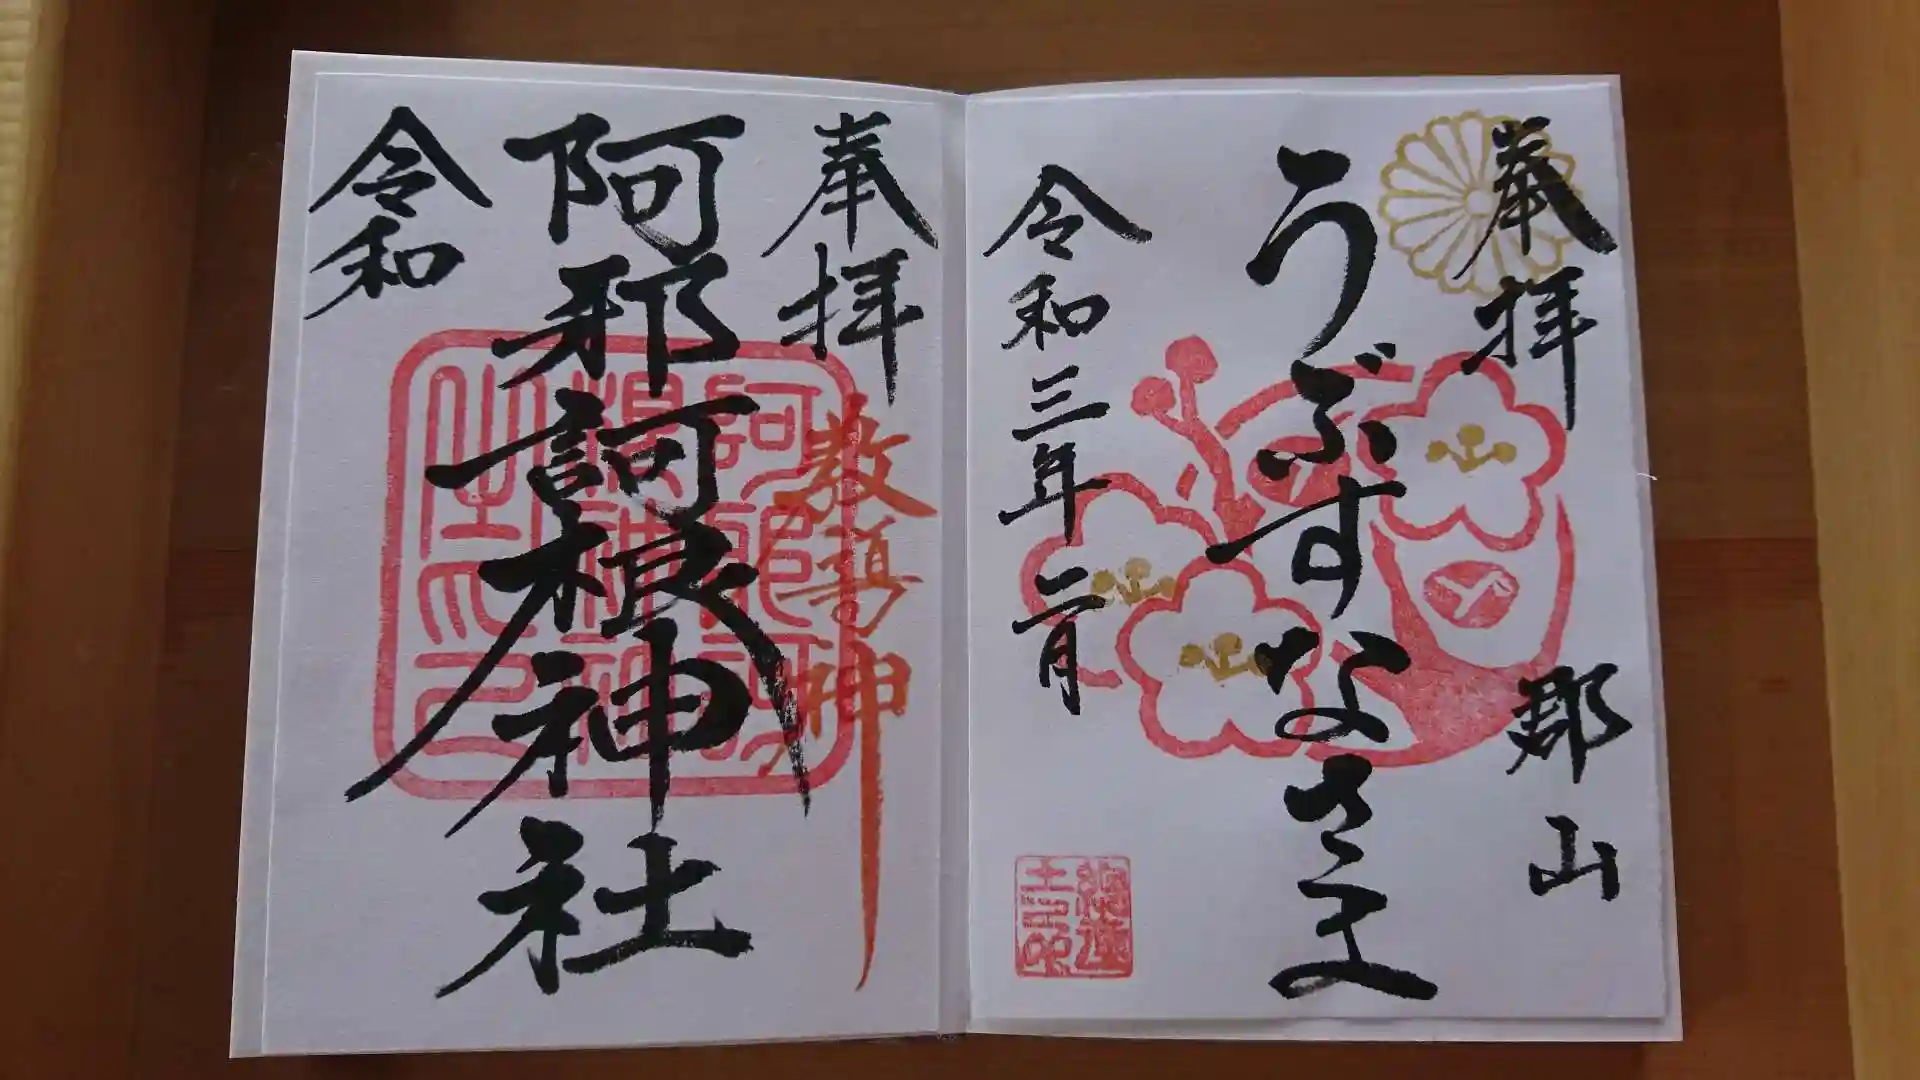 奉拝
郡山
うぶすなさま
令和三年二月
奉拝
数尋神
阿邪訶根神社
令和